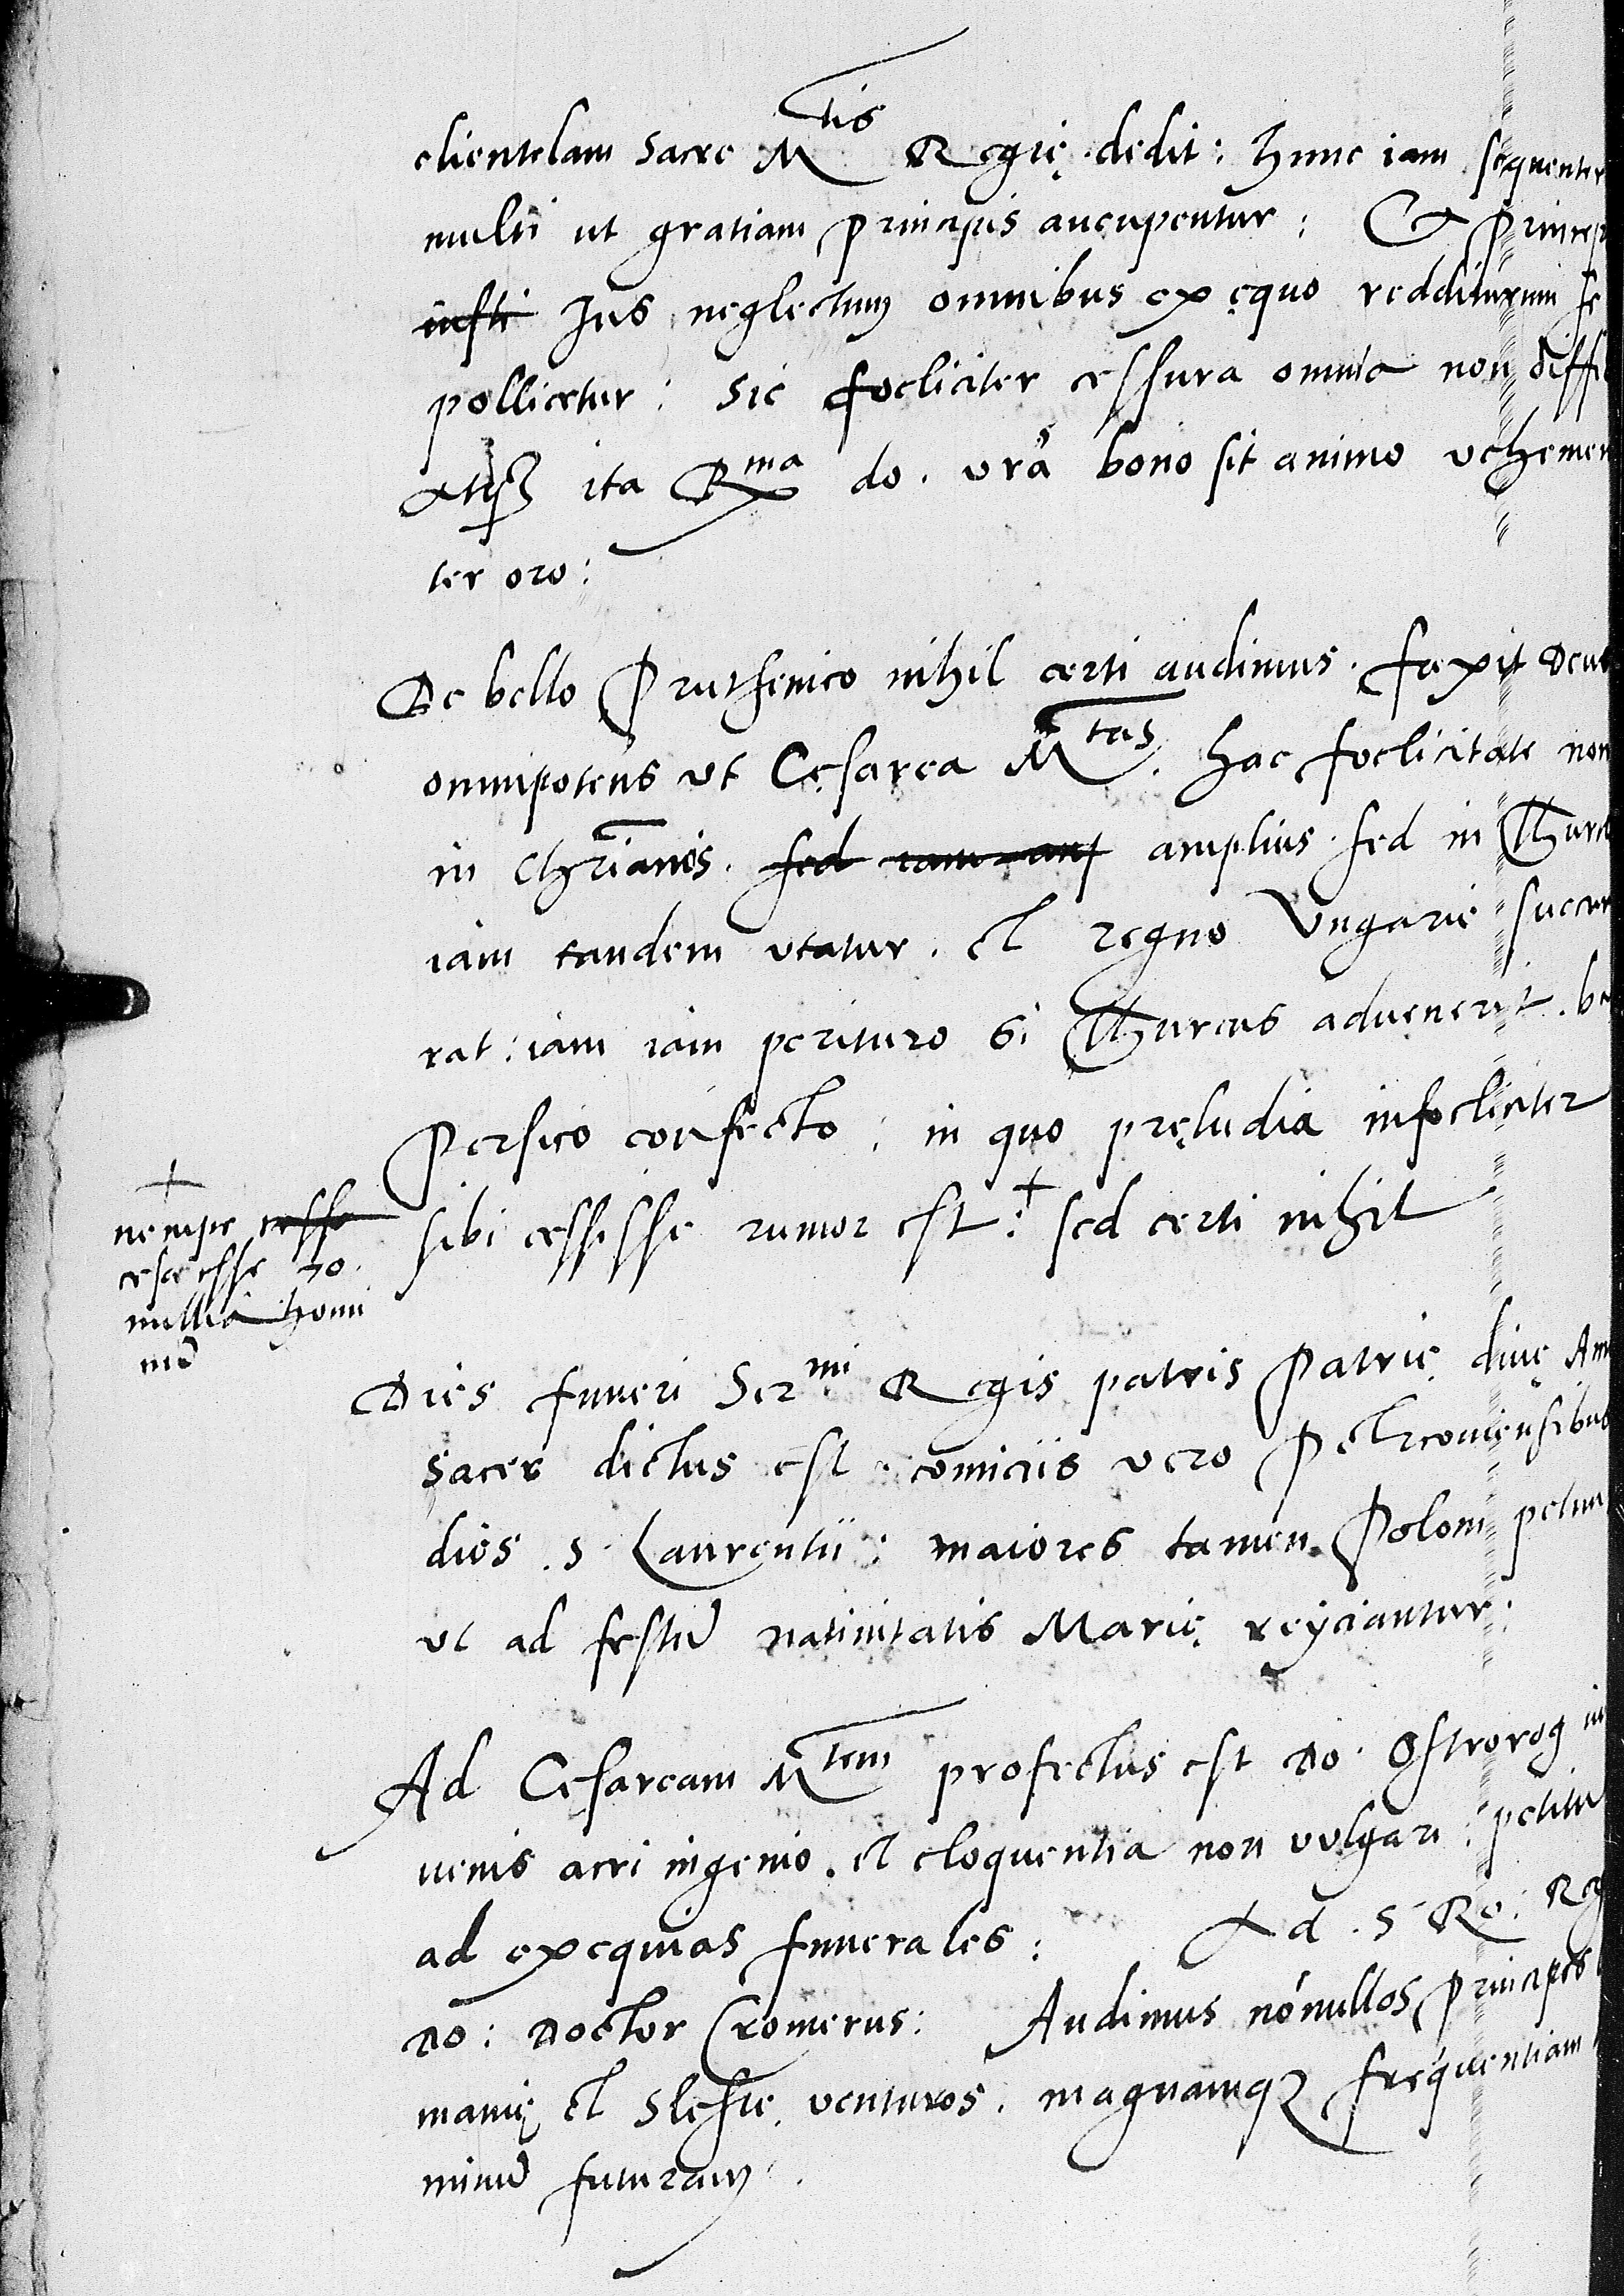 clientelam Sacre Mtis Regię dedit: hunc iam sequenter
multi ut gratiam principis aucupentur: Et princep
iusti Jus neglectum omnibus ex ęquo redditurum se
pollicetur: Sic foeliciter cessura omnia non diffi
atqz ita Rma do. vrã bono sit animo vehemen
ter oro:
De bello Pruthenico nihil certi audimus. faxit Deus
omnipotens ut Cęsarea Mtas. hac foelicitate non
in Chrianis. sed iam am amplius. sed in Thurc
iam tandem utatur. et regno Ungarie succur
rat: iam iam perituro si Thurcus advenerit. be
Persico confecto: in quo pręludia infoeliciter
sibi cessisse rumor est: + sed certi nihil
+
nempe cesse
cesç esse 70.
millia homi
nũ
Dies funeri Sermi Regis patris Patrię divę Ann
sacer dictus est. comiciis vero Petrcoviensibus
dies. S. Laurentii: maiores tamen Poloni petun
ut ad festũ nativitatis Marię reijciantur:
Ad Cesaream Mtem profectus est Do. Ostrorog iu
venis acri ingenio. et eloquentia non vulgari: petitũ
ad exequias funerales: Ad. S Ro: Reg
Do: Doctor Cromerus: Audimus nónullos principes
manię et Slesie. venturos. magnamqz frequentiam
minũ futuram.